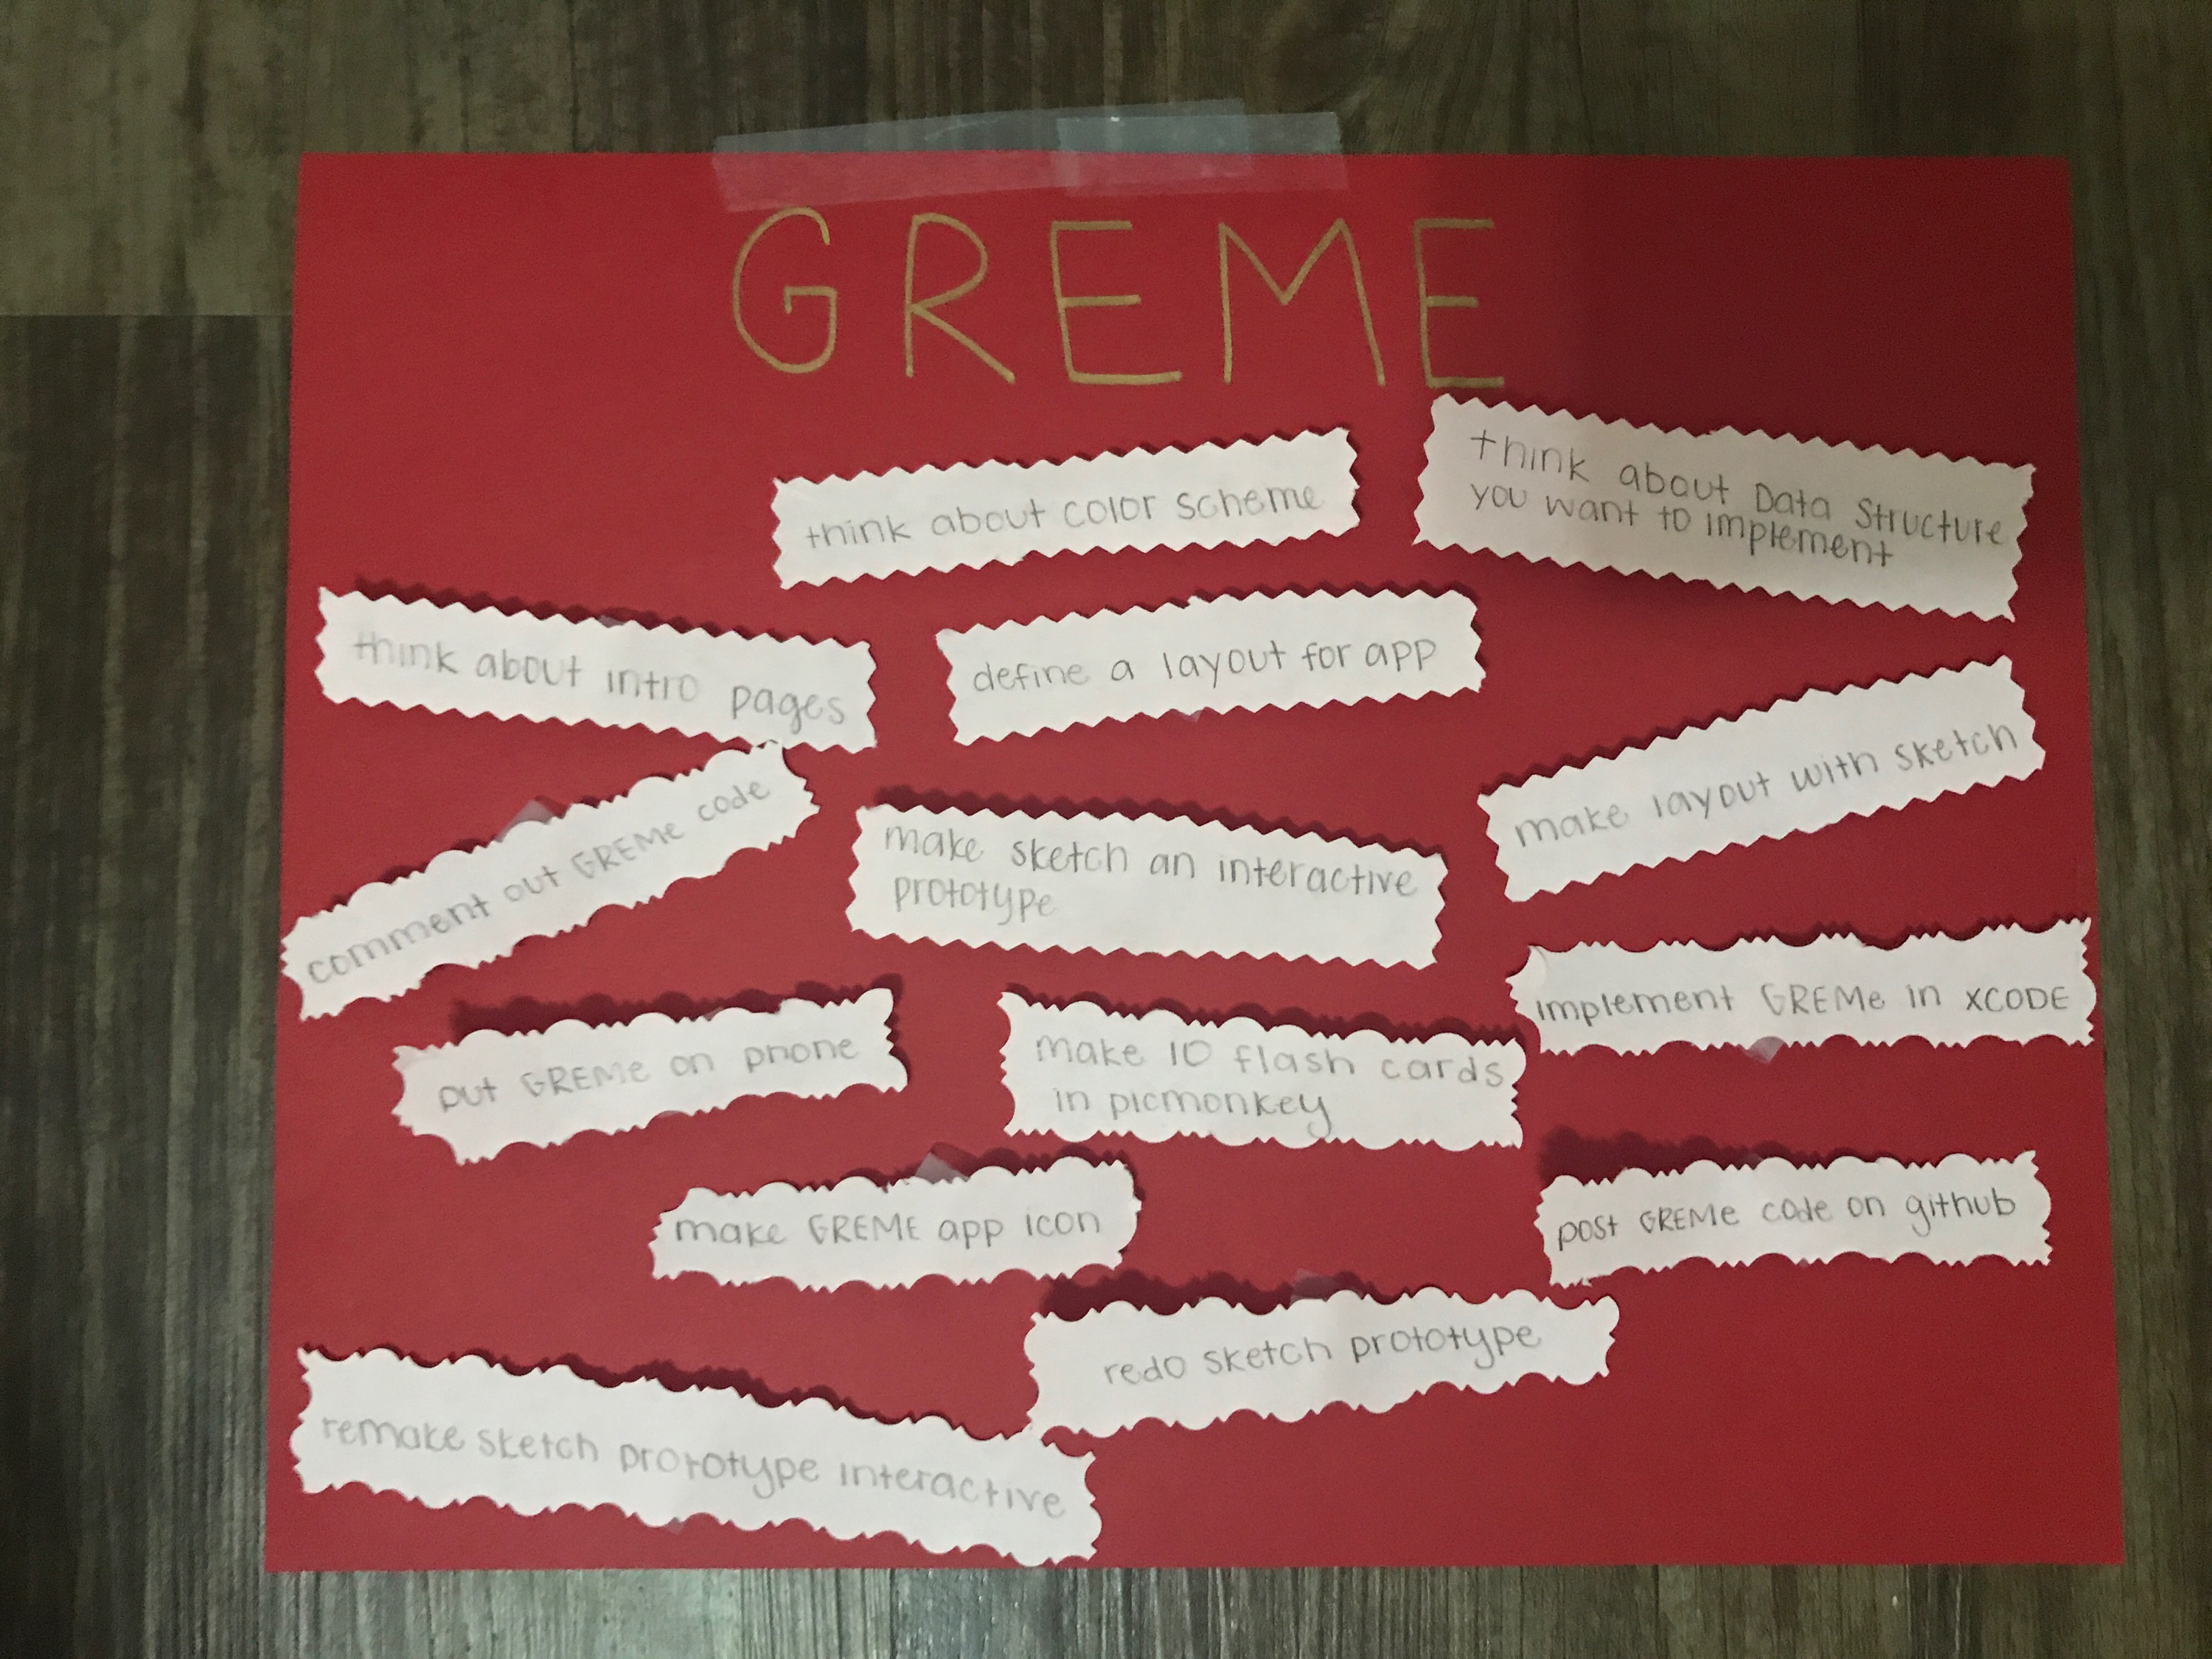 GREME
think about color scheme
think about Data Structure
you want to implement
think about intro pages
define a layout for app
make layout with sketch
comment out GREMe code
make sketch an interactive
prototype
implement GREMe in XCODE
put GREMe on phone
make 10 flash cards
in picmonkey
make GREME app icon
post GREMe code on github
redo sketch prototype
remake sketch prototype interactive